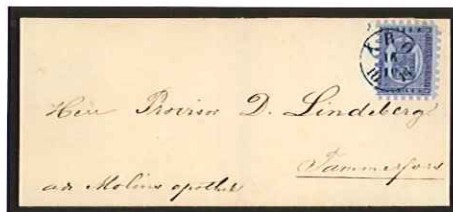 Herr Provisor D. Lindeberg
Tammerfors
adr Molins apothek